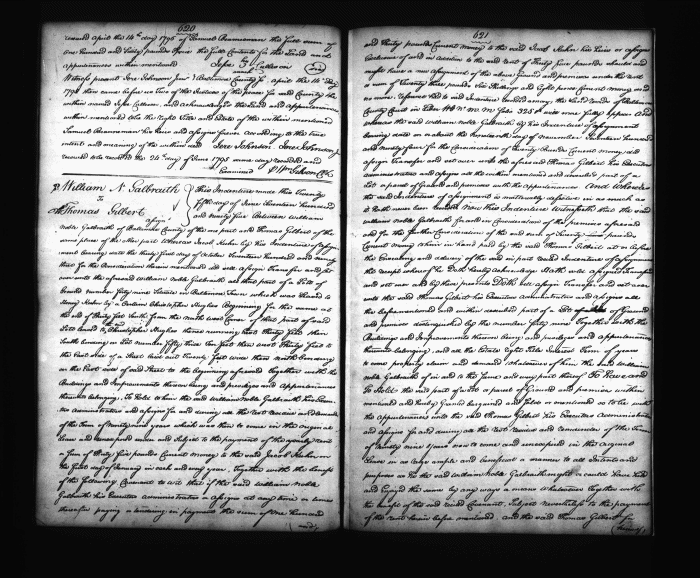 620
recorded April the 14th day 1795 of Samuel Brannaman the full sum of
one hundred and Sixty pounds
appurtenances within mentioned
Witness present
1795 there came before us Two of the Justices of the peace for said County the
within named and acknowledged the Land and Appurtenances
within mentioned the right title and Estate of the within mentioned
Samuel Brannaman his heirs and assigns forever According to the true
intent and meaning of the within deed
received to be recorded the 24th day of June 1795 same day recorded and
Examined
William N Galbraith
To
Thomas Gilbert
assign
This Indenture made this Twenty
fifth day of June Seventeen hundred
and ninety five Between William
Noble Galbraith of Baltimore County of the one part and Thomas Gilbert of the
same place of the other part Whereas Jacob Hahn by his Indenture of assign
ment bearing date the thirty first day of October Seventeen hundred and ninety
for the Consideration therein mentioned did sell assign Transfer and set
over unto the aforesaid William Noble Galbraith all that part of a Lot of
Ground number fifty nine Situate in Baltimore Town which was leased to
Henry Hahn by a certain Christopher Hughes Beginning for the same at
the end of Thirty feet South from the North west corner of that part of said
Lot leased Christopher Hughes thence running East Thirty feet then
South bending on Lot number fifty three Ten feet then West Thirty feet to
the East side of a Street laid out Twenty feet wide thence North bending
on the East side of said Street to the beginning aforesaid Together with the
Buildings and Improvements thereon being and privileges and appurtenances
thereunto belonging, To Hold to him the said William Noble Galbraith his Execu
tors administrators and assigns for and during all the rest residue and remainder
of the Term of Ninety nine years which was then to come in the original
lease and unexpired and Subject to the payment of the yearly rent
a Sum of Thirty five pounds Current money to the said Jacob Hahn on
the first day of January in each and every year, Together with the benefit
of the following Covenant to wit that if the said William Noble
Galbraith his Executors administrators or assigns at any time or times
thereafter paying or tendering in payment the sum of one hundred
and
621
and Thirty pounds Current money to the said Jacob Hahn his heirs or assigns
Exclusive of and in addition to the said rent of Thirty five pounds should and
might have a new assignment of the above ground and premises under the rent
or sum of Twenty three pounds six Shillings and Eight pence Current money and
no more. Reference had to said Indenture recorded among the Land records of Baltimore
County Court in Liber WG No MM folio 325 will more fully appear And
Whereas the said William Noble Galbraith by his Indenture of assignment
bearing date on or about the fourteenth day of November Seventeen hundred
and ninety four for the Consideration of Twenty pounds Current money did
assign Transfer and set over unto the aforesaid Thomas Gilbert his Executors
administrators and assigns all the within mentioned and recorded part of a
Lot a parcel of Ground and premises with the appurtenances And Whereas
the said Indenture of assignment is materially defective in as much as
it hath never been recorded Now this Indenture Witnesseth that the said
William Noble Galbraith for and in Consideration of the premises aforesaid
and for the further Consideration of the said sum of Twenty pounds
Current money to him in hand paid by the said Thomas Gilbert at or before
the Ensealing and delivery of the said in part recited Indenture of assignment
the receipt whereof he Doth hereby acknowledge Hath sold assigned Transferred
and set over and by these presents Doth sell assign Transfer and set over
unto the said Thomas Gilbert his Executors administrators and assigns all
the beforementioned and within described part of a Lot of Ground
and premises distinguished by the number fifty nine Together with the
Buildings and Improvements thereon being and privileges and appurtenances
thereunto belonging, and all the Estate Right Title Interest Term of years
to come property claim and demand whatsoever of him the said William
noble Galbraith of in and to the same and every part thereof To Have and
To Hold the said part of a Lot a parcel of Ground and premises within
mentioned and hereby Granted bargained and sold or mentioned so to be with
the appurtenances unto the said Thomas Gilbert his Executors Administrators
and assigns for and during all the rest residue and remainder of the Term
of Ninety nine years now to come and unexpired in the original
Lease in as large ample and beneficial a manner to all Intents and
purposes as he the said William Noble Galbraith might or could have held
and Enjoyed the same by any ways or means whatsoever Together with
the benefit of the said recited Covenant, Subject nevertheless to the payment
of the rent herein before mentioned, and the said Thomas Gilbert for
himself